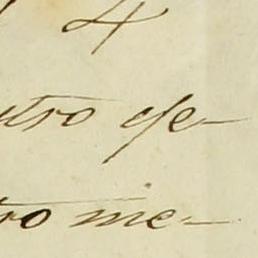 4
utro efe-
tro me-